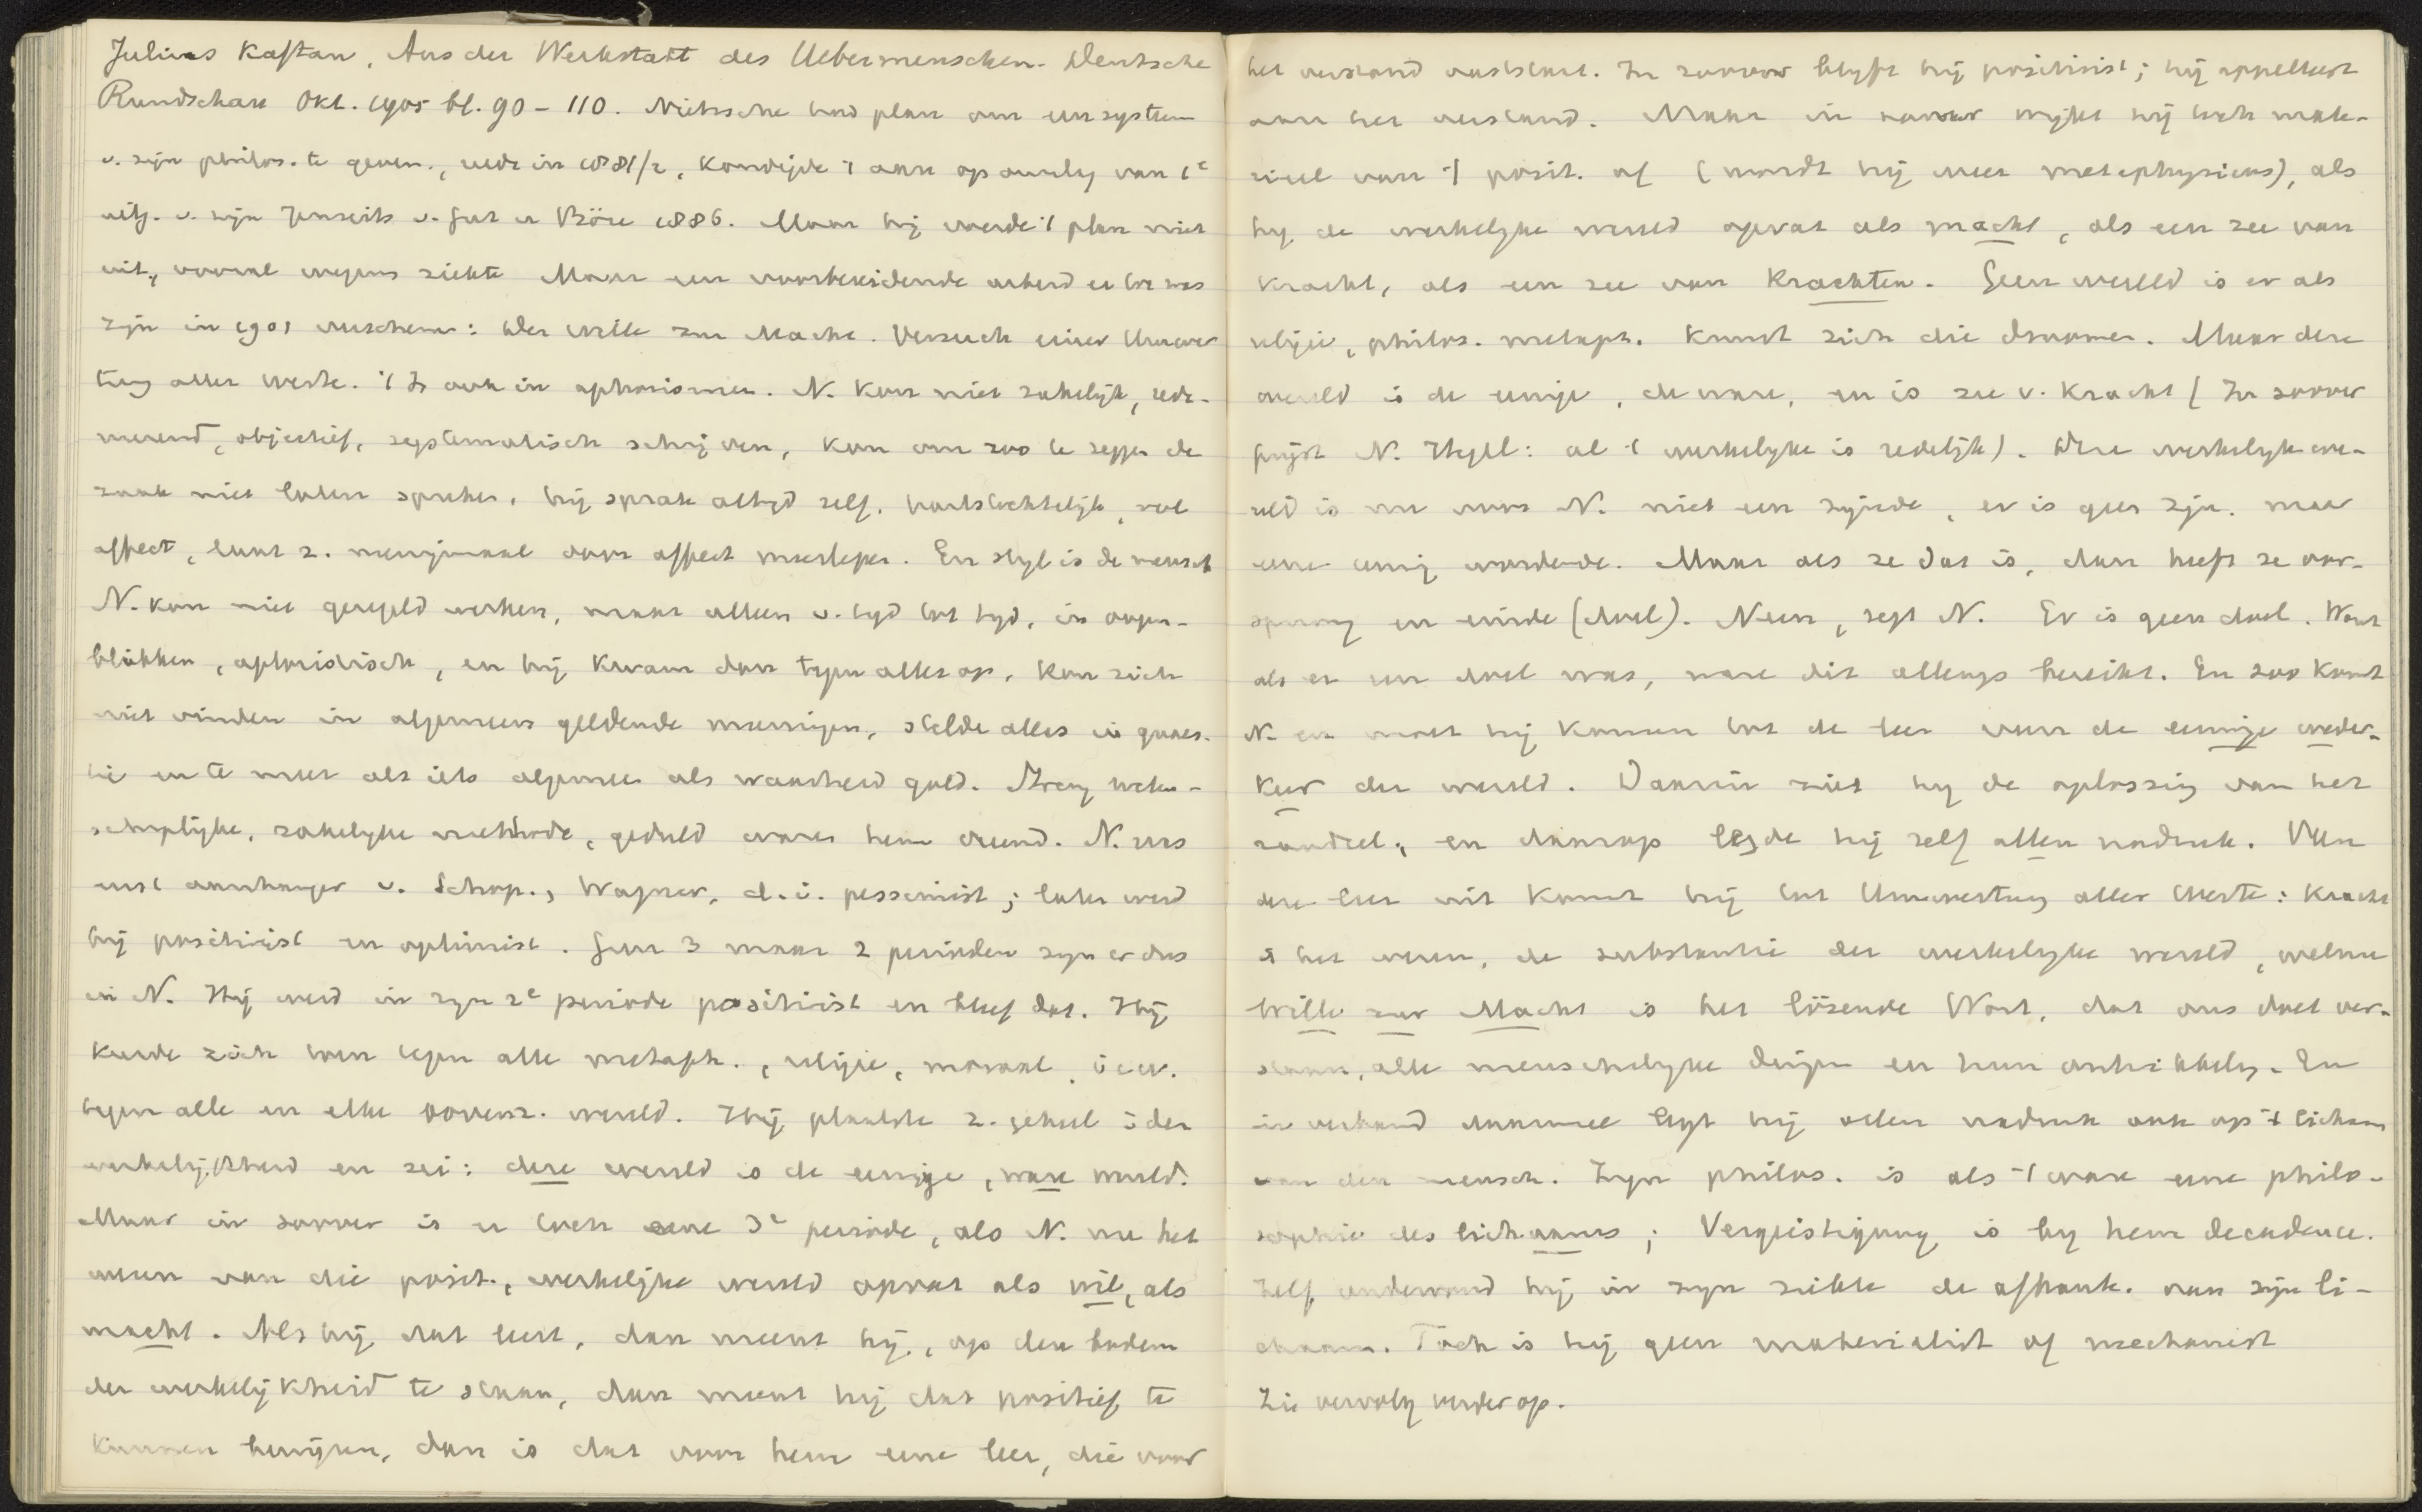 Julius Kaftan, Aus der Werkstatt des Uebermenschen. Deutsche
Rundschau Okt. 1905 bl. 90-110. Nietzsche had plan om een systeem
v. zijn philos. te geven, reeds in 1881/2, kondigde 't aan op omslag van 1e
uitg. v. zijn Jenseits v. Gut u Böse 1886. Maar hij voerde 't plan niet
uit, vooral wegens ziekte Maar een voorbereidende arbeid er toe was
zijn in 1901 verschenen: Der Wille zur Macht. Versuch einer Umwer
tung aller Werte. 't Is ook in aphorismen. N. kon niet zakelijk, rede-
neerend, objectief, systematisch schrijven, kon om zoo te zeggen de
zaak niet laten spreken, hij sprak altijd zelf, hartstochtelijk, vol
affect, laat z. menigmaal door affect meeslepen. En stijl is de mensch
N. kon niet geregeld werken, maar alleen v. tijd tot tijd, in oogen-
blikken, aphoristisch, en hij kwam dan tegen alles op, kon zich
niet vinden in algemeen geldende meeningen, stelde alles in quaes-
tie en te meer als iets algemeen als waarheid gold. Streng weten-
schaplijke, zakelijke methode, geduld waren hem vreemd. N. was
eerst aanhanger v. Schop., Wagner, d.i. pessimist; later werd
hij positivist en optimist. Geen 3 maar 2 perioden zijn er dus
in N. Hij werd in zijn 2e periode positivist en bleef dat. Hij
keerde zich toen tegen alle metaph., religie, moraal, i.e.w.
tegen alle en elke bovenz. wereld. Hij plaatste z. geheel i der
werkelijkheid en zei: deze wereld is de eenige, ware wereld.
Maar in zoover is er toch eene 3e periode, als N. nu het
wezen van die posit., werkelijke wereld opvat als wil, als
macht. Als hij dat leert, dan meent hij, op den bodem
der werkelijkheid te staan, dan meent hij dat positief te
kunnen bewijzen, dan is dat voor hem eene leer, die voor
het verstand vaststaat. In zoover blijft hij positivist; hij appelleert
aan het verstand. Maar in zoover wijkt hij toch mate-
rieel van 't posit. af (wordt hij weer metaphysicus), als
hij de werkelijke wereld opvat als macht, als een zee van
kracht, als een zee van krachten. Geen wereld is er als
religie, philos. metaph. kunst zich die droomen. Maar deze
wereld is de eenige, de ware, en is zee v. kracht (In zoover
prijst N. Hegel: al 't werkelijke is redelijk). Deze werkelijke we-
reld is nu voor N. niet een zijnde, er is geen zijn, maar
eene eeuwig wordende. Maar als ze dat is, dan heeft ze oor-
sprong en einde (doel). Neen, zegt N. Er is geen doel. Want
als er een doel was, ware dit allengs bereikt. En zoo komt
N. en moet hij komen tot de leer van de eeuwige weder-
keer der wereld. Daarin ziet hij de oplossing van het
raadsel, en daarop legde hij zelf allen nadruk. Van
deze leer uit komt hij tot Umwertung aller Werte: Kracht
is het wezen, de substantie der werkelijke wereld,
Wille zur Macht is het lösende Wort, dat ons doet ver-
staan, alle menschelijke dingen en hun ontwikkeling. En
in verband daarmee legt hij allen nadruk ook op 't lichaam
van den mensch. Zijn philos. is als 't ware eene philo-
sophie des lichaams; Vergeistigung is bij hem decadence.
Zelf ondervond hij in zijn ziekte de afhank. van zijn li-
chaam. Toch is hij geen materialist of mechanist
Zie vervolg verder op.